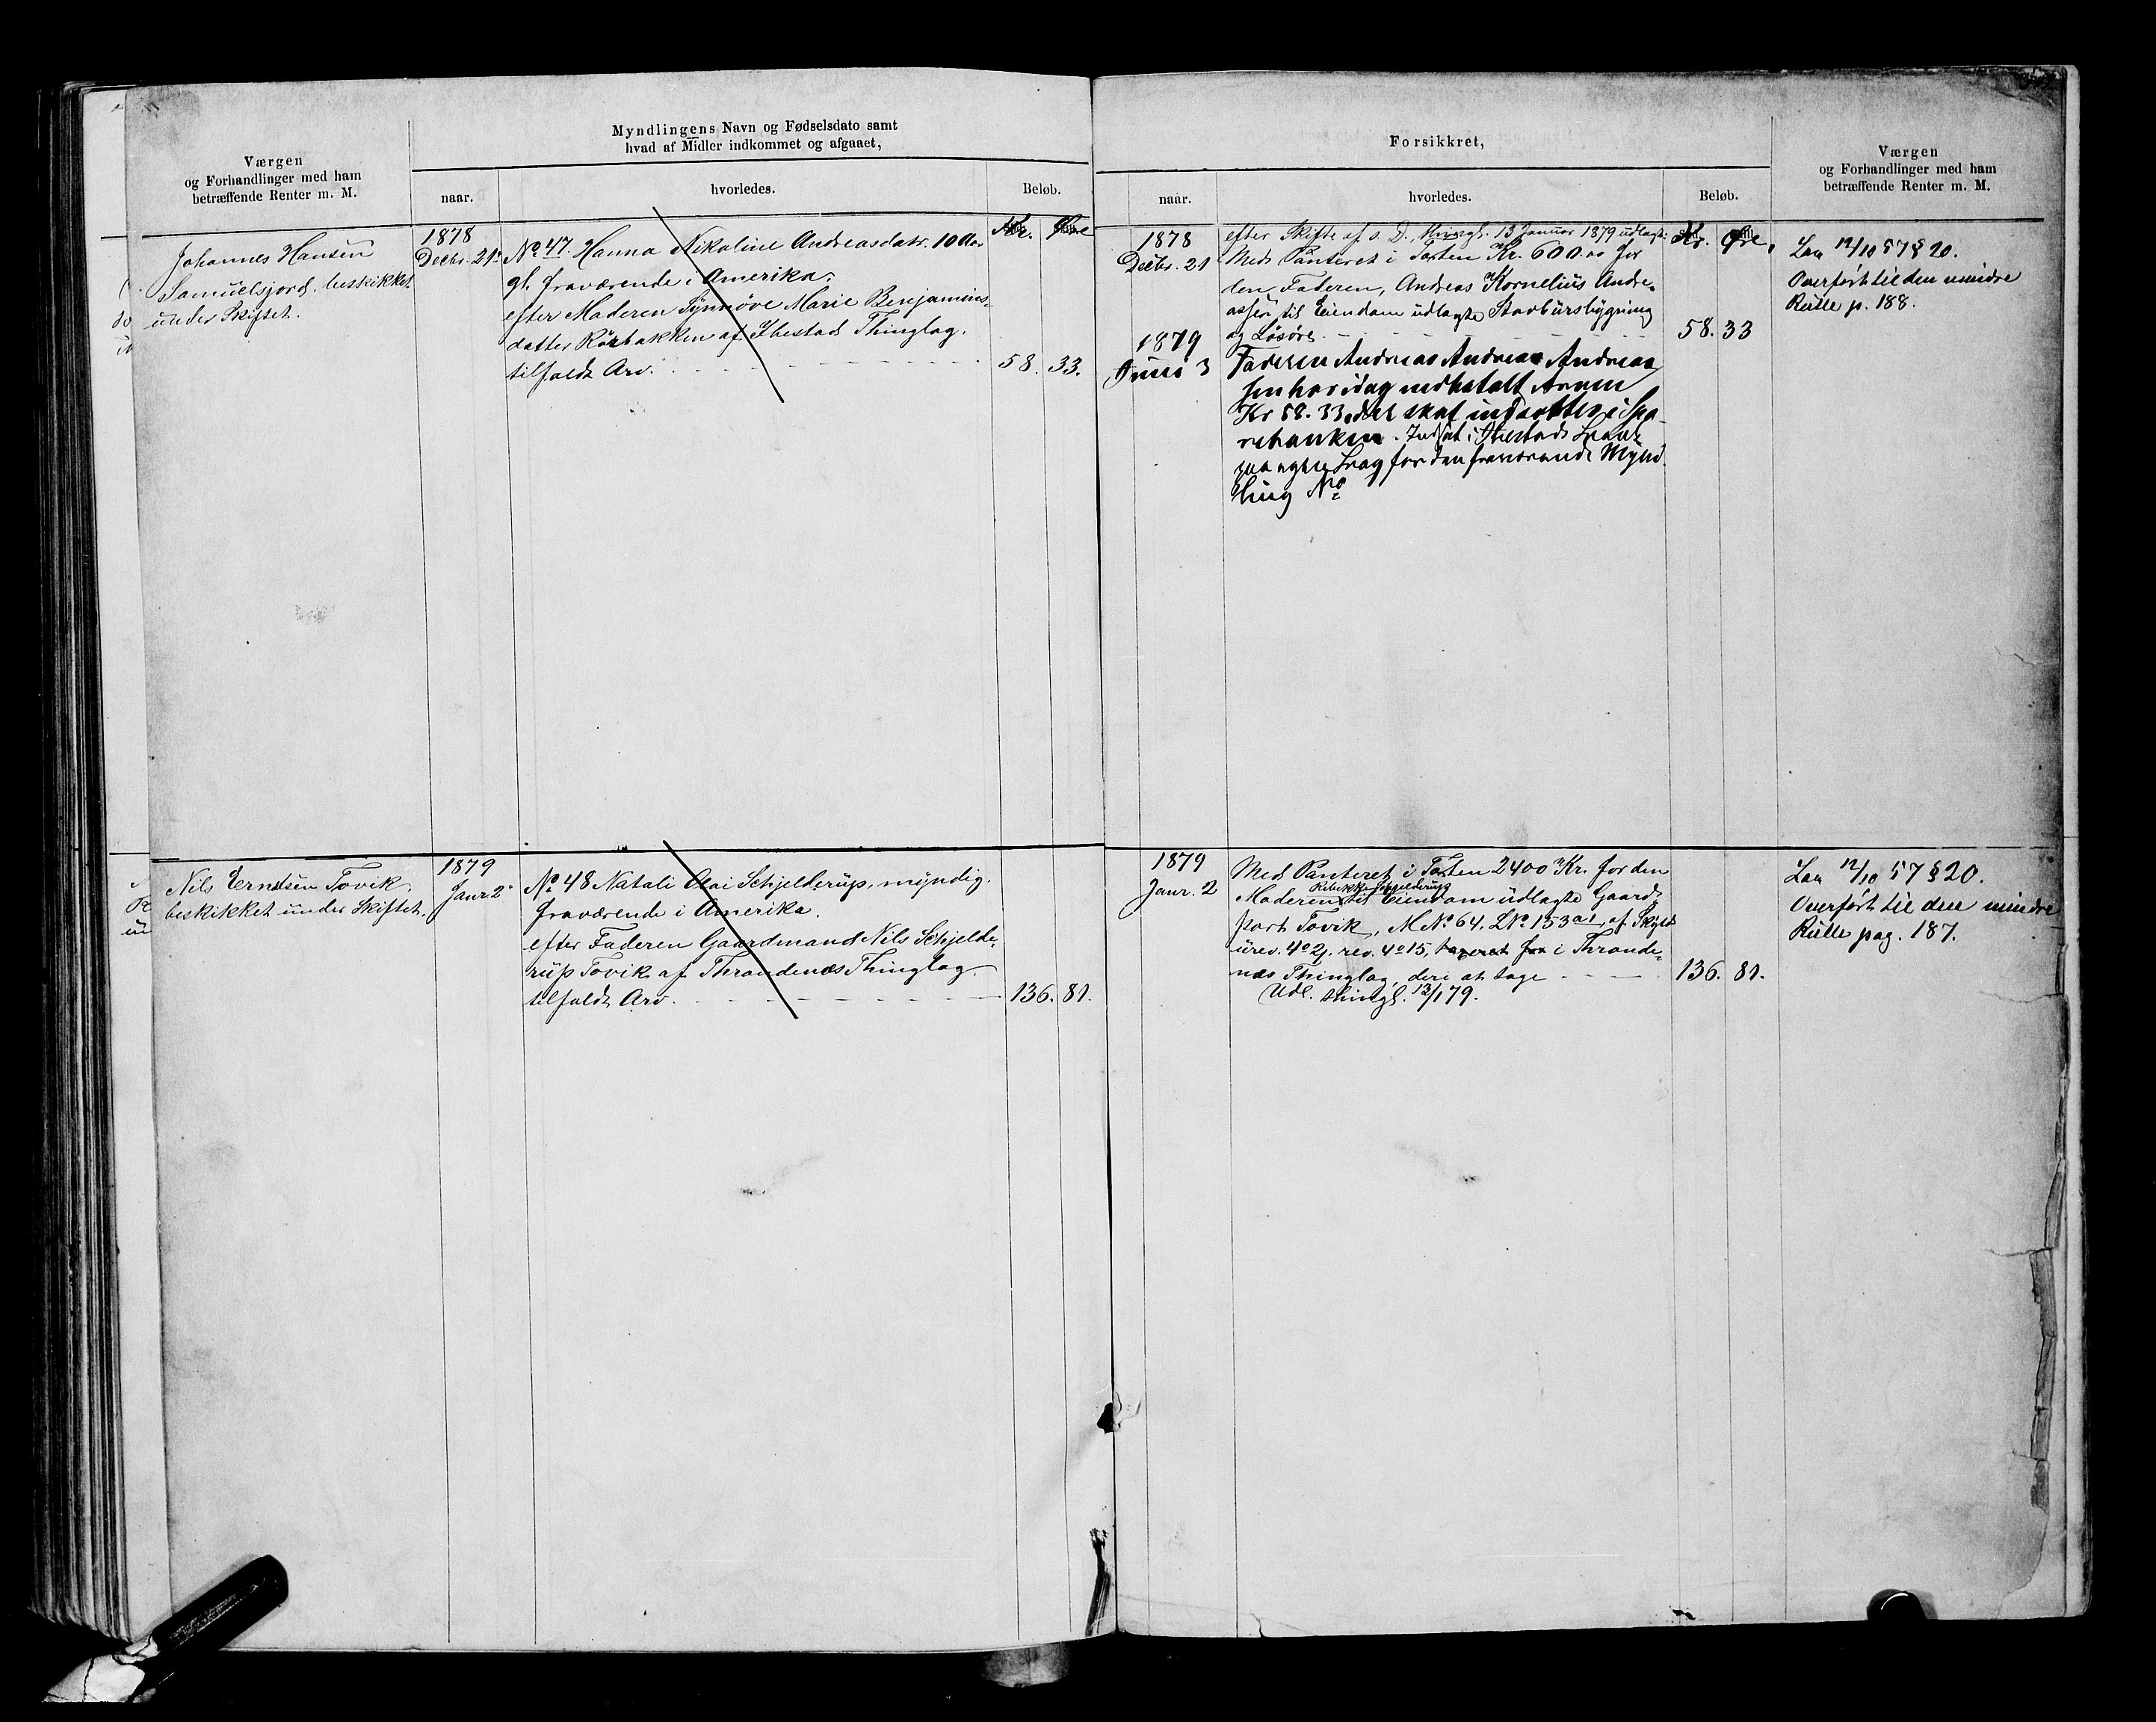 Værgen
og Forhandlinger med ham
betræffende Renter m. M.
Myndlingens Navn og Fødselsdato samt
hvad af Midler indkommet og afgaaet,
naar.
hvorledes.
Beløb.
Kr. Øre
Johannes Hansen
Samuelsjord, beskikket
under Skiftet.
1878
Decbr. 21
No 47. Hanna Nikoline Andreasdatr. 10 Aar
gl. fraværende i Amerika.
efter Moderen Synnøve Marie Benjamins-
datter Rørbakken af Ibestad Thinglag.
tilfaldt Arv. 58. 33.
Nils Erntsen Tovik,
beskikket under Skiftet.
1879
Janr 2
No 48 Natali Olai Schjelderup, myndig.
fraværende i Amerika.
efter Faderen Gaardmand Nils Schjelde-
rup Tovik af Throndenæs Thinglag
tilfaldt Arv. 136. 81.
Forsikkret,
naar.
hvorledes.
Beløb.
Værgen
og Forhandlinger med ham
betræffende Renter m. M.
Kr. Øre.
1878
Decbr. 21
efter Skifte af s. D., thingl. 13 Januar 1879 udlagt
Med Panteret i Taxten Kr. 600.00 for
den Faderen, Andreas Kornelius Andre-
assen til Eiendom udlagte Stavbursbygning
og Løsøre 58. 33
1879
Juni 3
Faderen Andreas Andreas Andreas
sen har idag indbetalt Arven
Kr 58. 33, der skal indsættes i Spa-
rebanken. Indsat i Ibestads Spbank
for den fraværende Mynd
ling No
Lov 12/10 57 § 20.
Overført til den mindre
Rulle p. 188.
1879
Janr. 2
Med Panteret i Taxten 2400 Kr. for den
Rebekka Schjelderup
Moderen til Eiendom udlagte Gaard-
part Tovik, M No 64, L No 153a1, af Skyld
urev. 4 o 2, rev. 4 o 15, taxeret for i Thronde-
næs Thinglag, deri at tage 136. 81.
Udl. thingl. 13/1 79.
Lov 12/10 57 § 20.
Overført til den mindre
Rulle pag. 187.